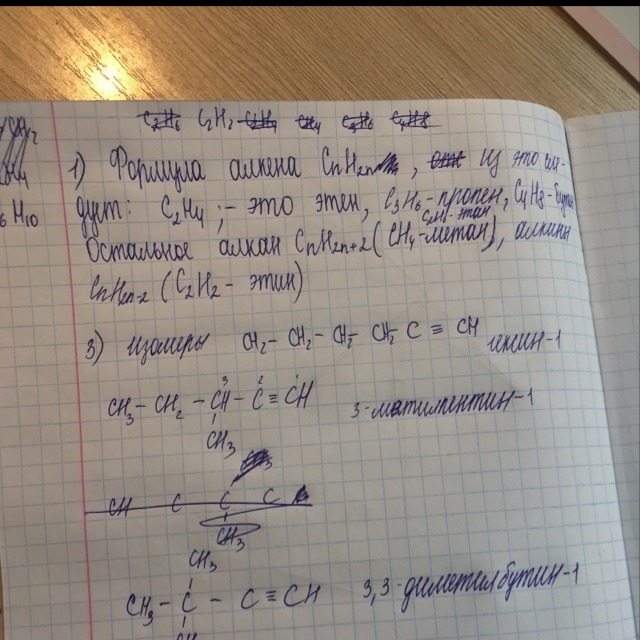 C2H6 C2H2 C2H4 CH4 C3H6 C4H8
CH4
6 H10
1) Формула алкена CnH2n, Из это сле-
дует: C2H4; - это этен, C3H6 - пропен, C4H8 - бутен
C2H6 - этан
Остальное алкан CnH2n+2 (CH4 - метан), алкины
CnH2n-2 (C2H2 - этин)
3) изомеры CH2 - CH2 - CH2 - CH2 C ≡ CH гексин-1
3 2 1
CH3 - CH2 - CH - C ≡ CH 3-метилпентин-1
CH3
CH C C C
CH3
CH3
CH3 - C - C ≡ CH 3,3-диметилбутин-1
CH